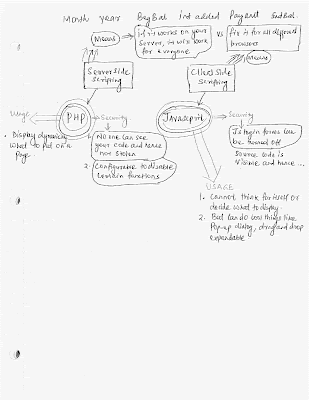 Month year BegBal int added Payent EndBal.
Means
if it works on your
Server, it will work
for everyone
vs
fix it for all different
browsers
Means
Serverside
Scripting
Client Side
Scripting
Usage
PHP
Security
Javascript
Security
Display dynamically
what to put on a
Page.
1. No one can see
your code and hence
not stolen
2. Configurable to disable
certain functions
Js login forms can
be turned off
Source code is
Visible and hence ...
USAGE
1. Cannot think for itself or
decide what to display.
2. But can do cool things like
Popup dialog, drag and drop
expandable